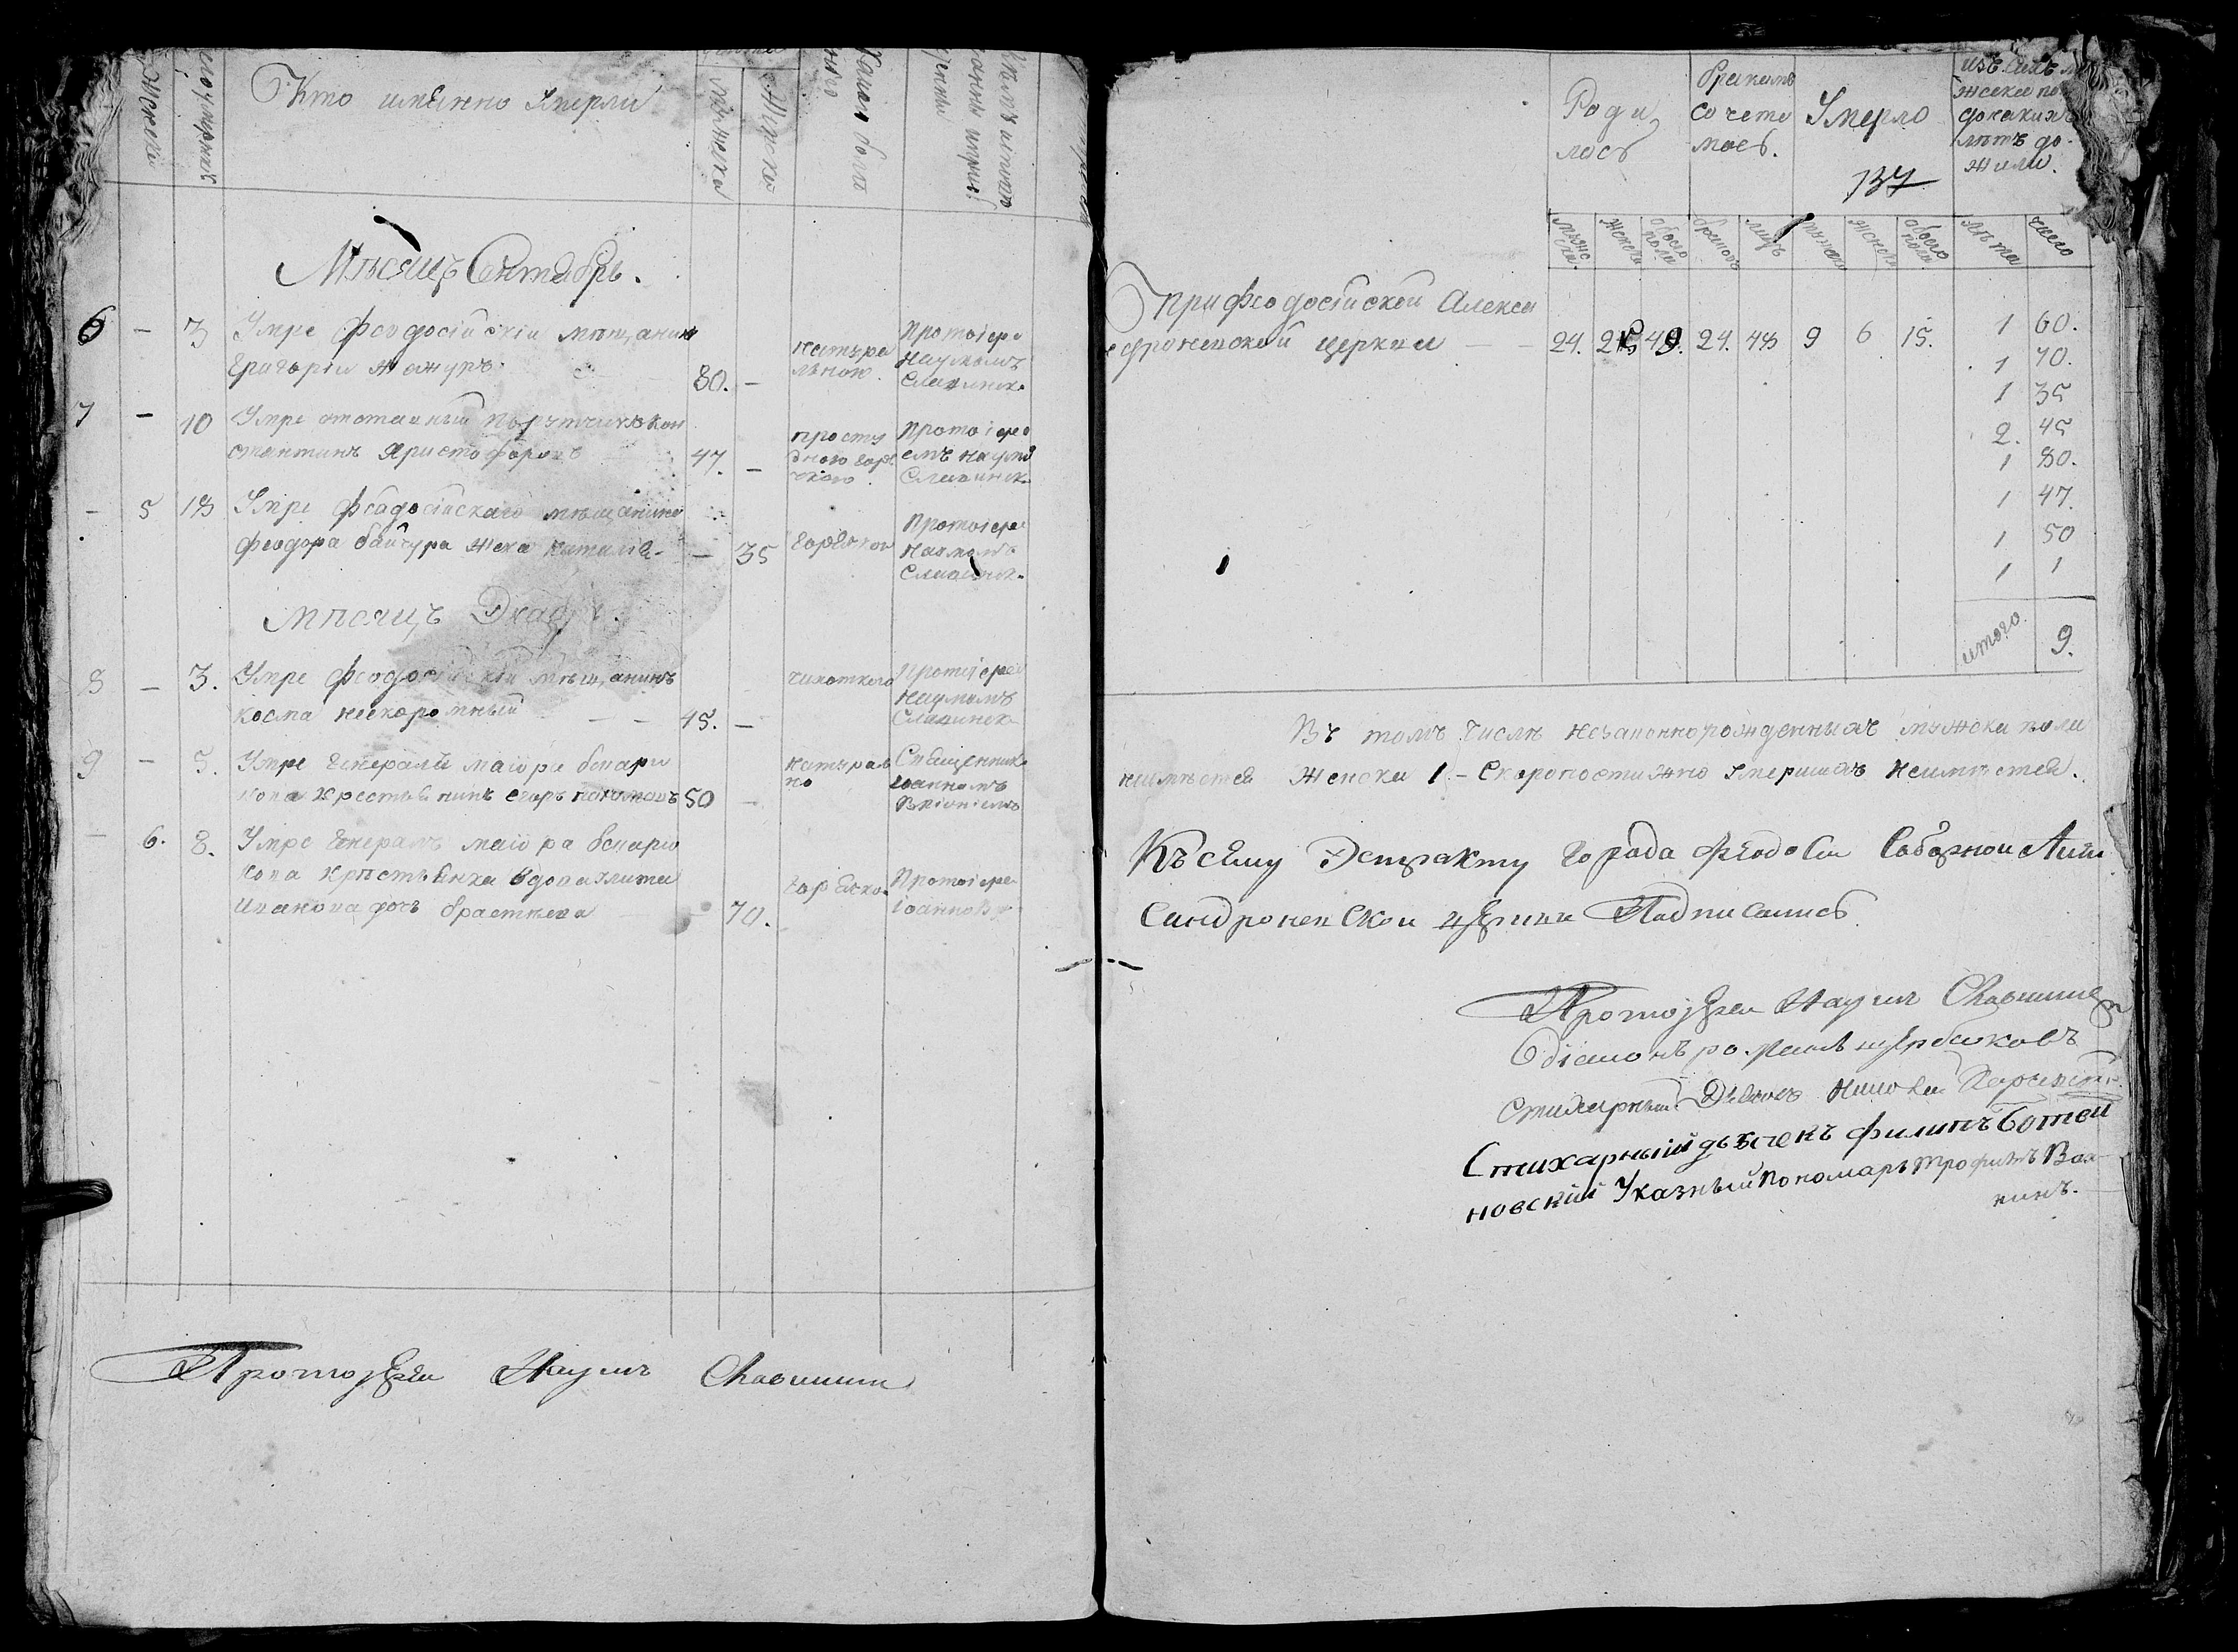 Кто имянно Умерли
Мужеска
Женска
Какою болезнію
Месяцъ Сентябрь.
6 — 3 Умре Феодосійскій мещанинъ
Григорій 80. —
натура
льною
Протоіере
Наумомъ
Славинск.
7 — 10 Умре отставный Порутчикъ Кон
стантинъ Христофоровъ 47. —
просту
дною горя
чкою
Протоіере
емъ Наумо
Славинск.
— 5 18 Умре Феодосійскаго мещанина
Феодора Байчура жена Наталія — 35
горячкою
Протоіере
Наумомъ
Славинск.
Месяцъ Декабрь.
8 — 3. Умре Феодосійскій мещанинъ
Косма Нескоромный — — 45. —
чихоткою
Протоіерея
Наумомъ
Славинск
9 — 5. Умре Генералъ маіора
кова крестьянинъ Егоръ 50 —
натураль
но
Священник
Іоанномъ
— 6. 8. Умре Генералъ маіора
кова крестьянка вдова
Иванова дочь — 70.
горячко
Протоіере
Іоанно
Протоіерей Наумъ Славинский
Роди
лось
бракомъ
сочета
лось.
Умерло
137
изъ сихъ му
жеска пола
до какихъ
летъ до
жили.
Мужес
ка.
Женска
обоего
пола
браковъ
лицъ
мужеска
женска
обоего
пола
лета
число
При Феодосійской Алекса
ндроневской церкви — — 24. 25 49. 24. 48 9 6 15.
1 60.
1 70.
1 35
2. 45
1 80.
1 47.
1 50
1 1
итого. 9.
Въ томъ числе незаконнорожденныхъ мужска пола
неиметея женска 1. — Скоропостижно умершихъ неиметея.
Къ сему Экстракту Города Феодосіи Соборной Алек
сандроневской церкви Подписались
Протоіерей Наумъ Славинский
Діаконъ Романъ Щербаковъ
Стихарный Дьячокъ
Стихарный дьячекъ Филипъ Ботви
новскій Указный Пономарь Трофимъ Вол
кинъ.